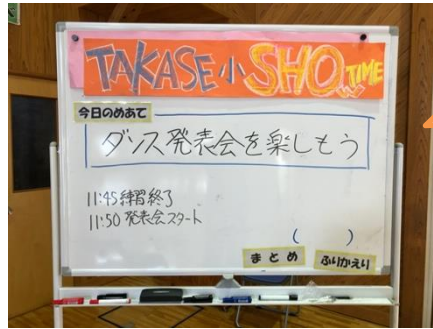 TAKASE小SHOW TIME
今日のめあて
ダンス発表会を楽しもう
11:45 練習終了
11:50 発表会スタート
(　　)
まとめ ふりかえり